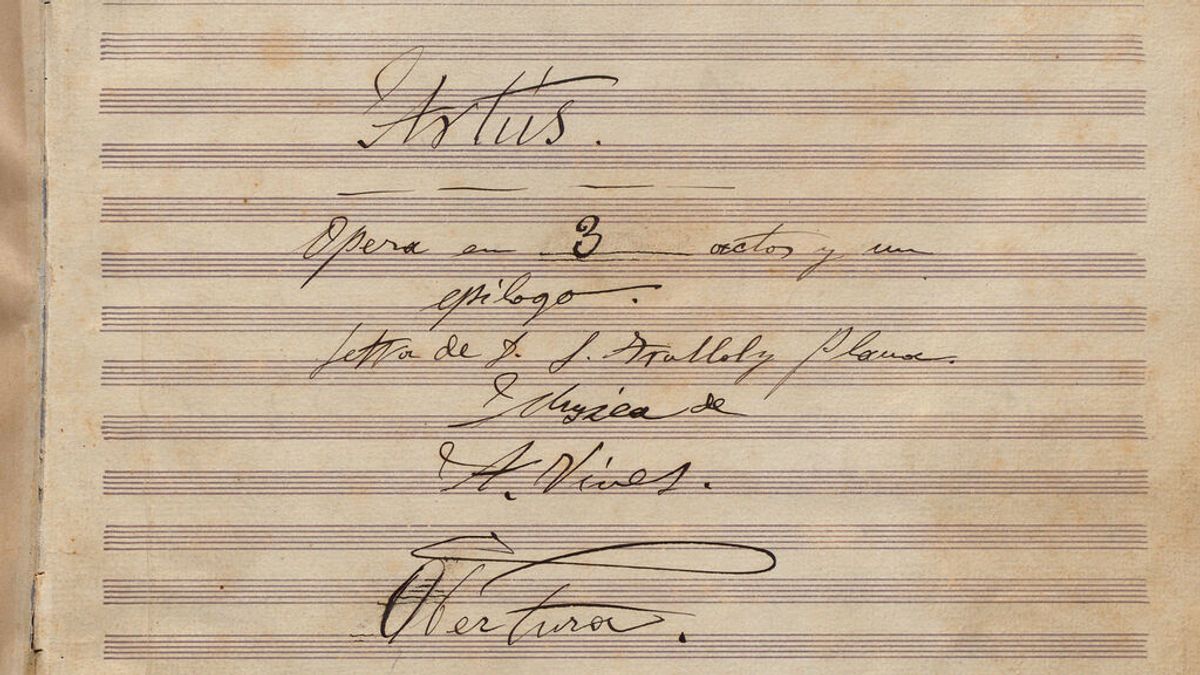 Artús.
Opera en 3 actos y un
epílogo.
Letra de D. S. Trullol y Plana.
Musica de
A. Vives.
Obertura.